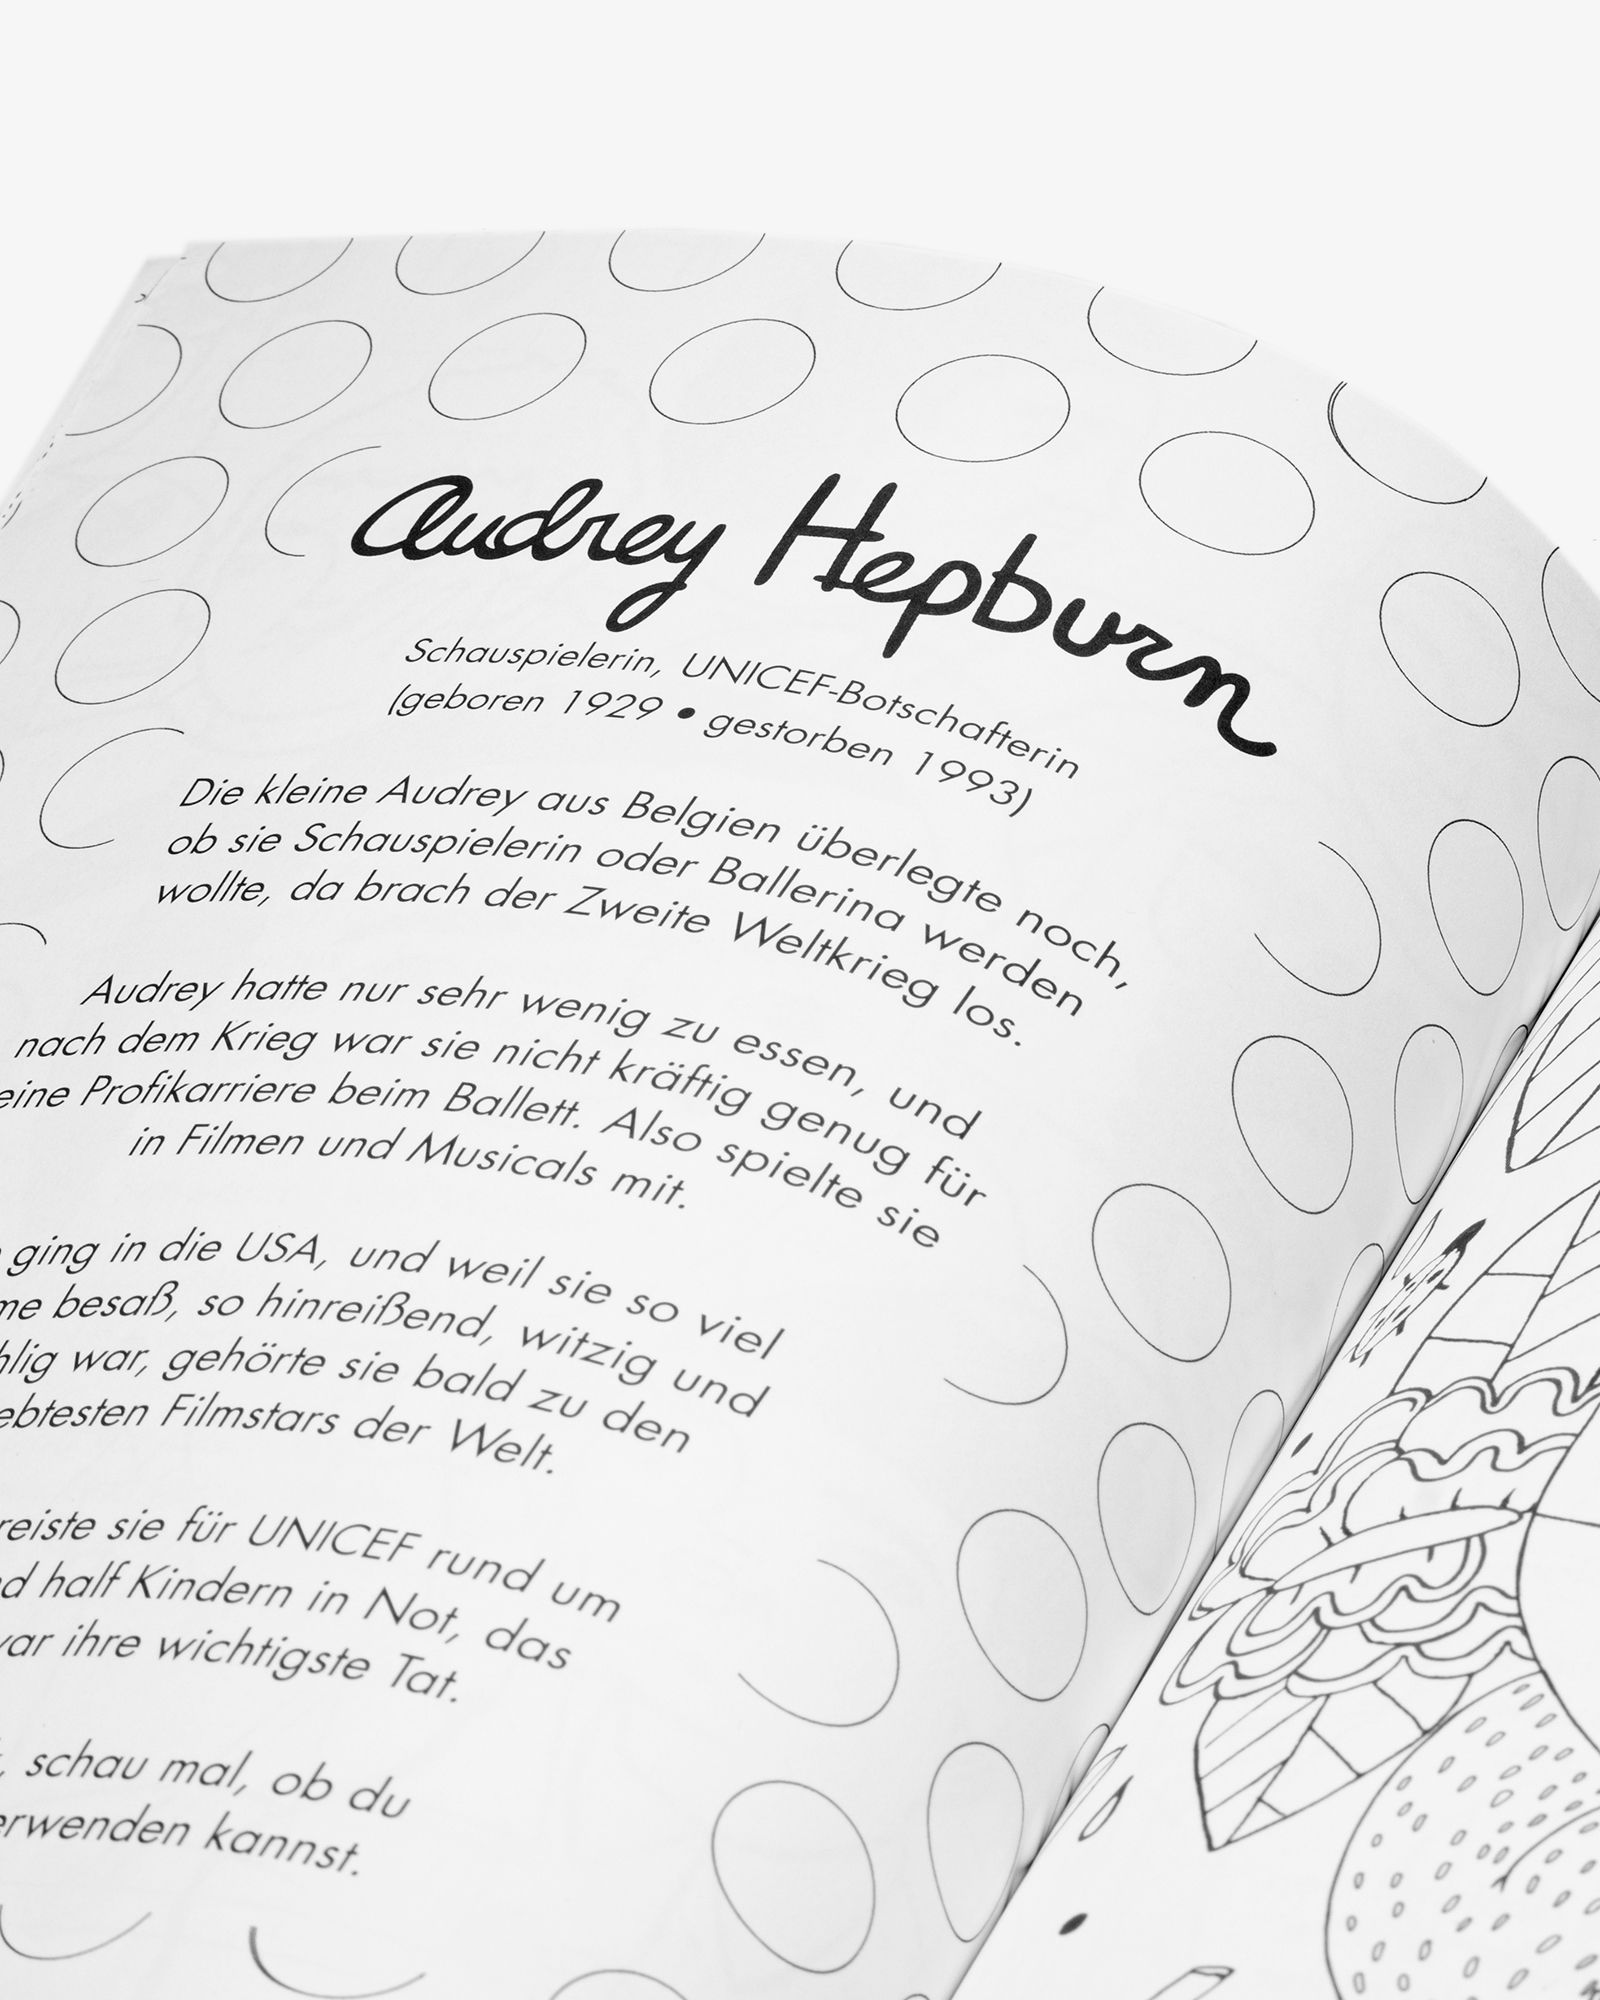 Audrey Hepburn
Schauspielerin, UNICEF-Botschafterin
(geboren 1929 • gestorben 1993)
Die kleine Audrey aus Belgien überlegte noch,
ob sie Schauspielerin oder Ballerina werden
wollte, da brach der Zweite Weltkrieg los.
Audrey hatte nur sehr wenig zu essen, und
nach dem Krieg war sie nicht kräftig genug für
eine Profikarriere beim Ballett. Also spielte sie
in Filmen und Musicals mit.
ging in die USA, und weil sie so viel
besaß, so hinreißend, witzig und
war, gehörte sie bald zu den
Filmstars der Welt.
reiste sie für UNICEF rund um
half Kindern in Not, das
war ihre wichtigste Tat.
schau mal, ob du
verwenden kannst.